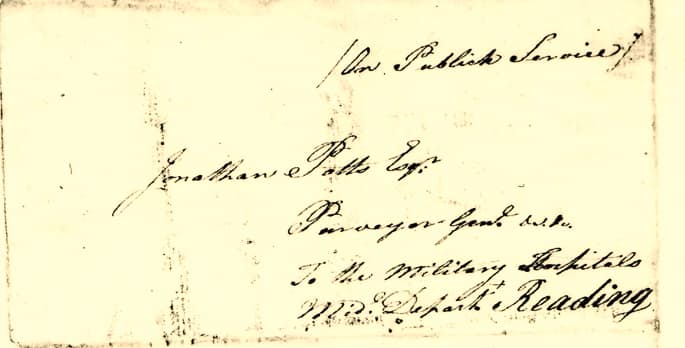 /On Publick Service/
Jonathan Potts Esqr.
Purveyor Genl. &c. &c.
To the Military Hospitals
Midd. Departt. Reading